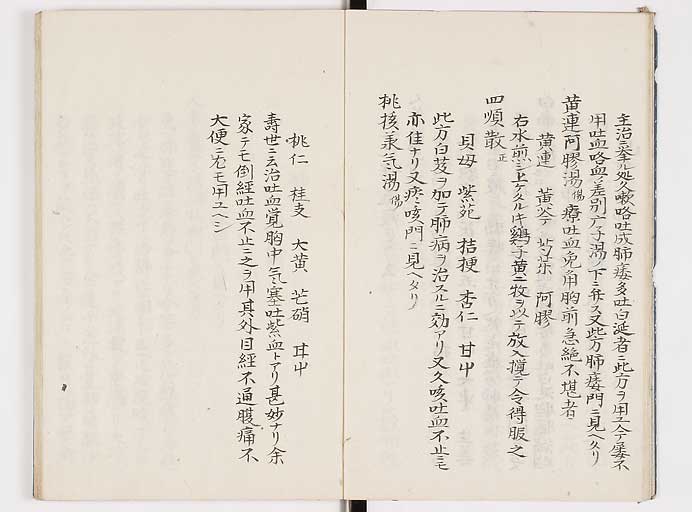 主治ニ挙ル処久嗽咯吐成肺痿多吐白涎者ニ此方ヲ用ユ今屡不
用吐血咯血ノ差別六子湯ノ下ニ弁ス又此方肺痿門ニ見ヘタリ
黄連阿膠湯傷 療吐血鬼角胸前急絶不堪者
黄連 黄芩 芍薬 阿膠
右水煎シ上ケタルキ鷄子黄二牧ヲ以テ放入攪テ令得服之
四順散正
貝母 紫苑 桔梗 杏仁 甘艸
此方白芨ヲ加テ肺病ヲ治スルニ効アリ又久咳吐血不止ニモ
亦佳ナリ又痰咳門ニ見ヘタリ
桃核承気湯傷
桃仁 桂支 大黄 芒硝 甘艸
壽世ニ云治吐血覚胸中気塞吐紫血トアリ甚妙ナリ余
家テモ倒経吐血不止ニ之ヲ用其外目経不通腹痛不
大便ニモ用ユヘシ